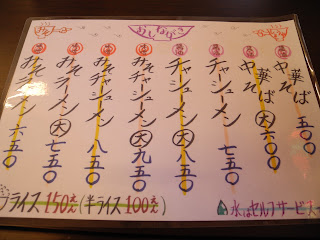 おしながき
中華そば 五〇〇
中華そば 大 六〇〇
チャーシューメン 七五〇
チャーシューメン 大 八五〇
みそチャーシューメン 大 九五〇
みそチャーシューメン 八五〇
みそラーメン 大 七五〇
みそラーメン 六五〇
ライス150元(半ライス100元)
水はセルフサービス